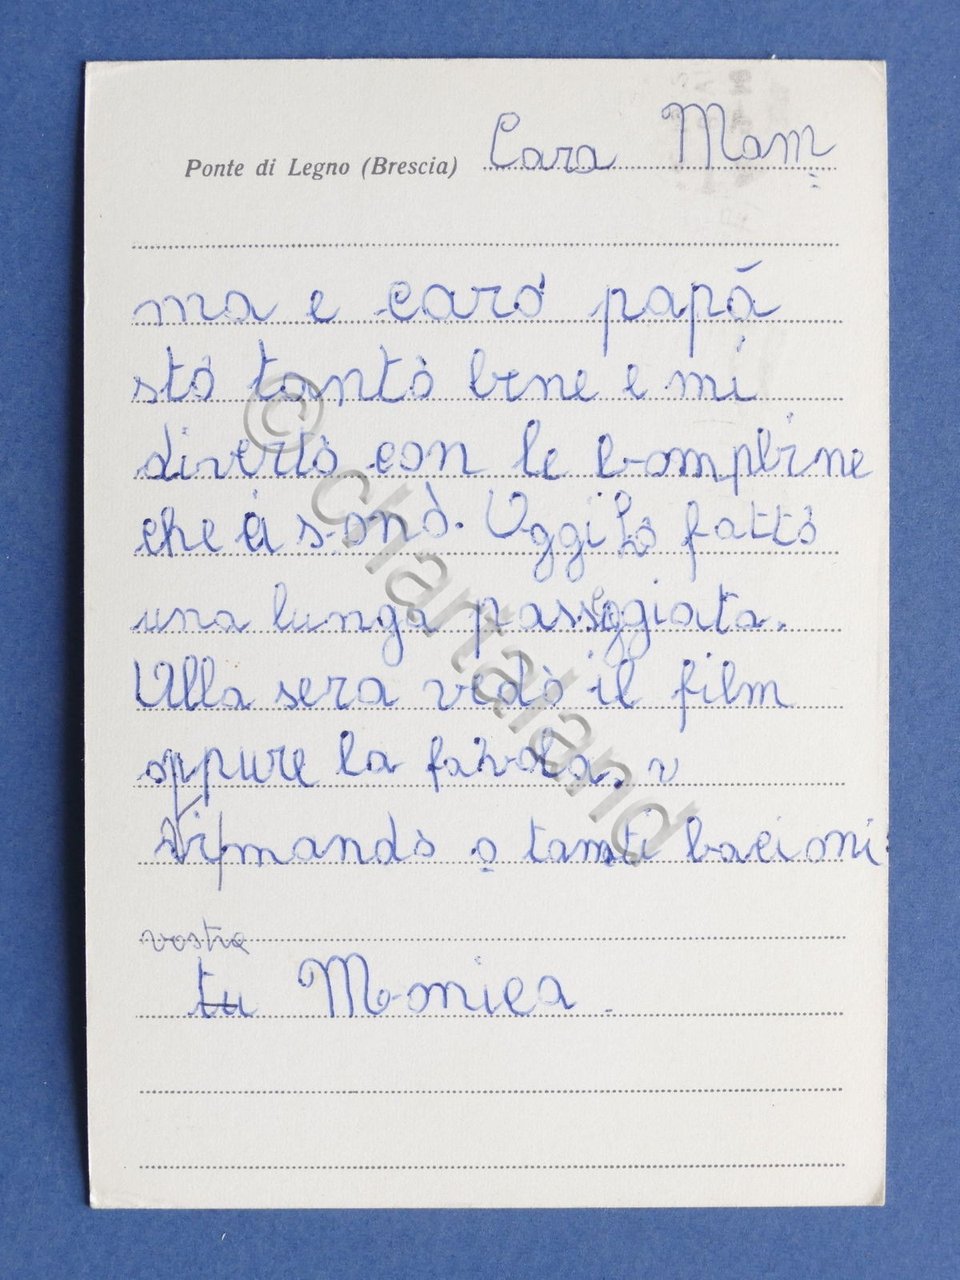 Ponte di Legno (Brescia) Cara Mam=
ma e caro papá
sto tanto bene e mi
diverto con le bompline
che ci sono. Oggi ho fatto
una lunga passeggiata.
Alla sera vedo il film
oppure la favola. v
Vi mando o tanti bacioni
vostra
tu Monica.
© chartaland